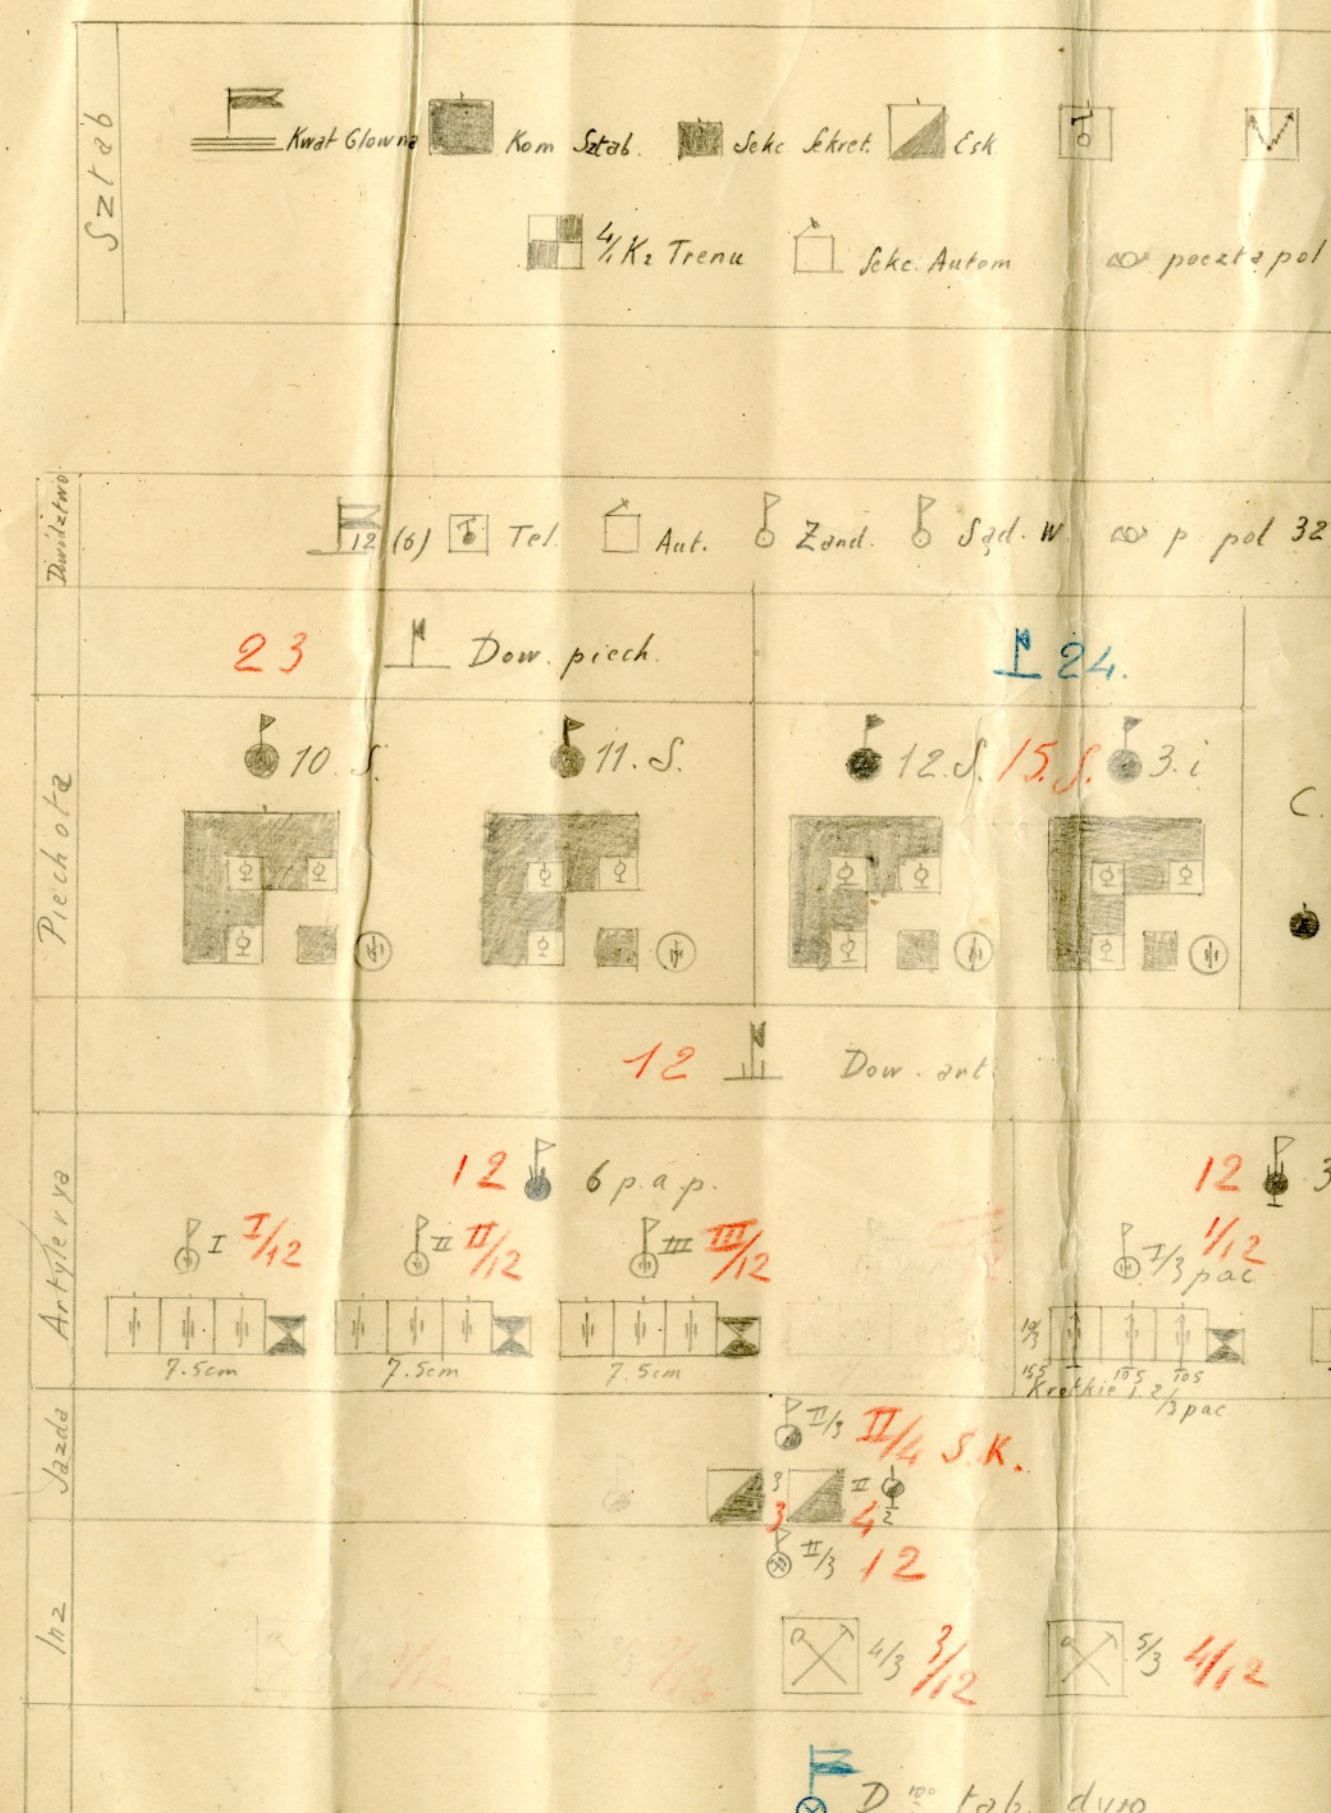 Sztab
Kwat Glowna Kom Sztab. Sekc Sekret. Esk.
4/1 K2 Trenu Sekc. Autom poczta pol
Dowództwo
12 (6) Tel. Aut. Żand. Sąd. W p. pol 32
23 Dow. piech. 24.
Piechota
10. S. 11. S. 12. S. 15. S. 3. i
C.
12 Dow. art.
Artylerya
12 6 p.a.p. 12 3
I I/12 II II/12 III III/12 I/3 pac 1/12
7.5cm 7.5cm 7.5cm 155 105 105
Krotkie 1. 2/3 pac
Jazda
II/3 II/4 S.K.
3 3 II 4 2
II/3 12
Inz
4/3 3/12 5/3 4/12
D tab.